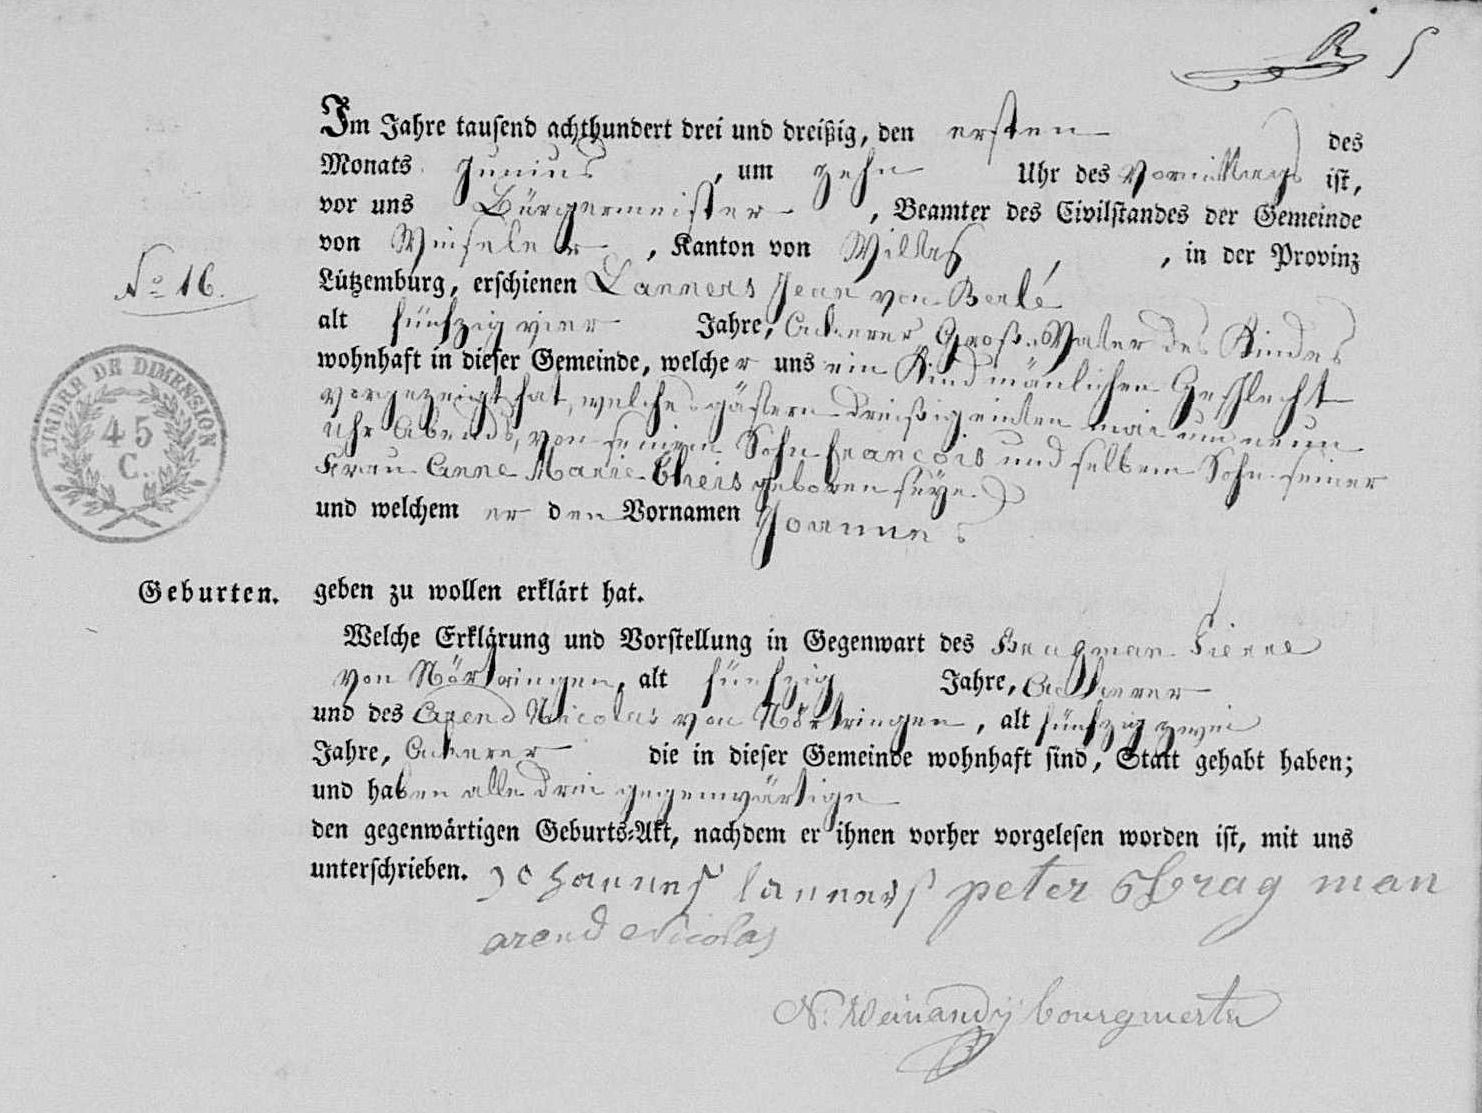 5
Im Jahre tausend achthundert drei und dreißig, den ersten des
Monats Junius, um zehn Uhr des Vormittags ist,
vor uns Bürgermeister, Beamter des Civilstandes der Gemeinde
von Winseler, Kanton von Wiltz, in der Provinz
No 16.
Lützemburg, erschienen Lanners Jean von Berlé
alt fünfzig vier Jahre, Ackerer Groß-Vater des Kindes
wohnhaft in dieser Gemeinde, welcher uns ein Kind mänlichen Geschlecht
vorgezeigt hat, welches gästern dreißig einten mai um neun
Uhr Abends, von seinem Sohn francois und selbem Sohn seiner
Frau Anne Marie Theis geboren seÿe.
TIMBRE DE DIMENSION
45
C.
und welchem er den Vornamen Joannes
Geburten.
geben zu wollen erklärt hat.
Welche Erklärung und Vorstellung in Gegenwart des Pierre
von Nörtringen, alt fünfzig Jahre, Ackerer
und des Arend Nicolas von Nörtringen, alt fünfzig zwei
Jahre, Ackerer die in dieser Gemeinde wohnhaft sind, Statt gehabt haben;
und haben alle drei gegenwärtige
den gegenwärtigen Geburts-Akt, nachdem er ihnen vorher vorgelesen worden ist, mit uns
unterschrieben. Johannes lanners peter man
arend Nicolas
N. Weinandÿ bourgmestre